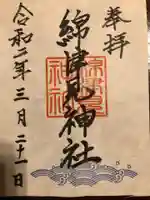 奉拝
綿津見神社
令和二年三月二十一日